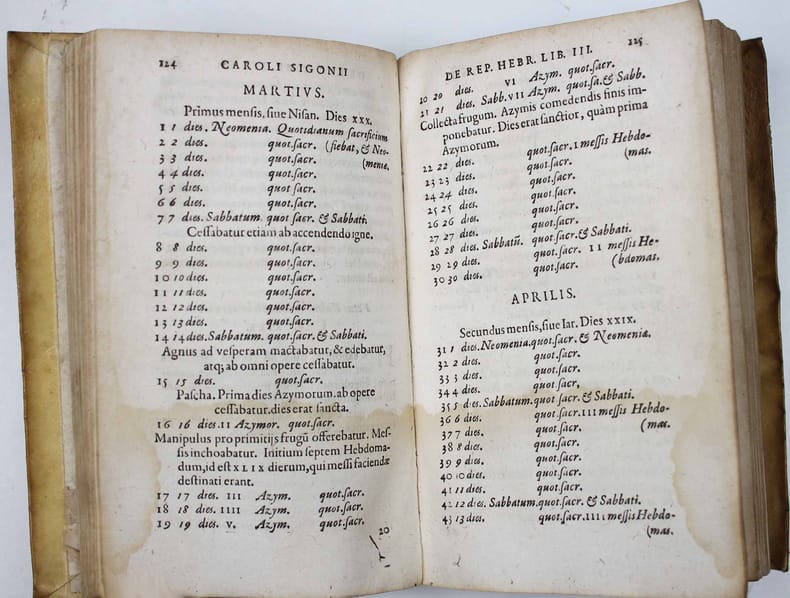 124 CAROLI SIGONII
MARTIVS.
Primus mensis, siue Nisan. Dies XXX.
1 1 dies. Neomenia. Quotidianum sacrificium
2 2 dies. quot.sacr. (fiebat, & Neo-
3 3 dies. quot.sacr. (meniæ.
4 4 dies. quot.sacr.
5 5 dies. quot.sacr.
6 6 dies. quot.sacr.
7 7 dies. Sabbatum. quot sacr. & Sabbati.
Cessabatur etiam ab accendendo igne.
8 8 dies. quot.sacr.
9 9 dies. quot.sacr.
10 10 dies. quot.sacr.
11 11 dies. quot.sacr.
12 12 dies. quot.sacr.
13 13 dies. quot.sacr.
14 14 dies. Sabbatum. quot sacr. & Sabbati.
Agnus ad vesperam mactabatur, & edebatur,
atq; ab omni opere cessabatur.
15 15 dies. quot.sacr.
Pascha. Prima dies Azymorum. ab opere
cessabatur. dies erat sancta.
16 16 dies. II Azymor. quot.sacr.
Manipulus pro primitijs frugū offerebatur. Mes-
sis inchoabatur. Initium septem Hebdoma-
dum, id est XLIX dierum, qui messi faciendæ
destinati erant.
17 17 dies. III Azym. quot.sacr.
18 18 dies. IIII Azym. quot.sacr.
19 19 dies. V. Azym. quot.sacr.
20
DE REP. HEBR. LIB. III. 125
20 20 dies. VI Azym. quot.sacr.
21 21 dies. Sabb. VII Azym. quot.sa. & Sabb.
Collecta frugum. Azymis comedendis finis im-
ponebatur. Dies erat sanctior, quàm prima
Azymorum.
22 22 dies. quot.sacr. I messis Hebdo-
23 23 dies. quot.sacr. (mas.
24 24 dies. quot.sacr.
25 25 dies. quot.sacr.
26 26 dies. quot.sacr.
27 27 dies. quot.sacr.
28 28 dies. Sabbatū. quot.sacr. & Sabbati.
29 29 dies. quot.sacr. II messis He-
30 30 dies. quot.sacr. (bdomas.
APRILIS.
Secundus mensis, siue Iar. Dies XXIX.
31 1 dies. Neomenia. quot.sacr. & Neomeniæ.
32 2 dies. quot.sacr.
33 3 dies. quot.sacr.
34 4 dies. quot.sacr,
35 5 dies. Sabbatum. quot.sacr. & Sabbati.
36 6 dies. quot.sacr. III messis Hebdo-
37 7 dies. quot.sacr. (mas.
38 8 dies. quot.sacr.
39 9 dies. quot.sacr.
40 10 dies. quot.sacr.
41 11 dies. quot.sacr.
42 12 dies. Sabbatum. quot.sacr. & Sabbati.
43 13 dies. quot.sacr. IIII messis Hebdo-
(mas.